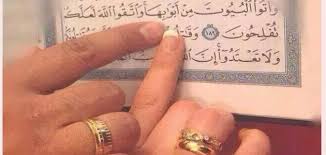 وَأْتُوا الْبُيُوتَ مِنْ أَبْوَابِهَا وَاتَّقُوا اللَّهَ لَعَلَّكُمْ
تُفْلِحُونَ ١٨٩
وَلَا تَعْتَدُوا إِنَّ